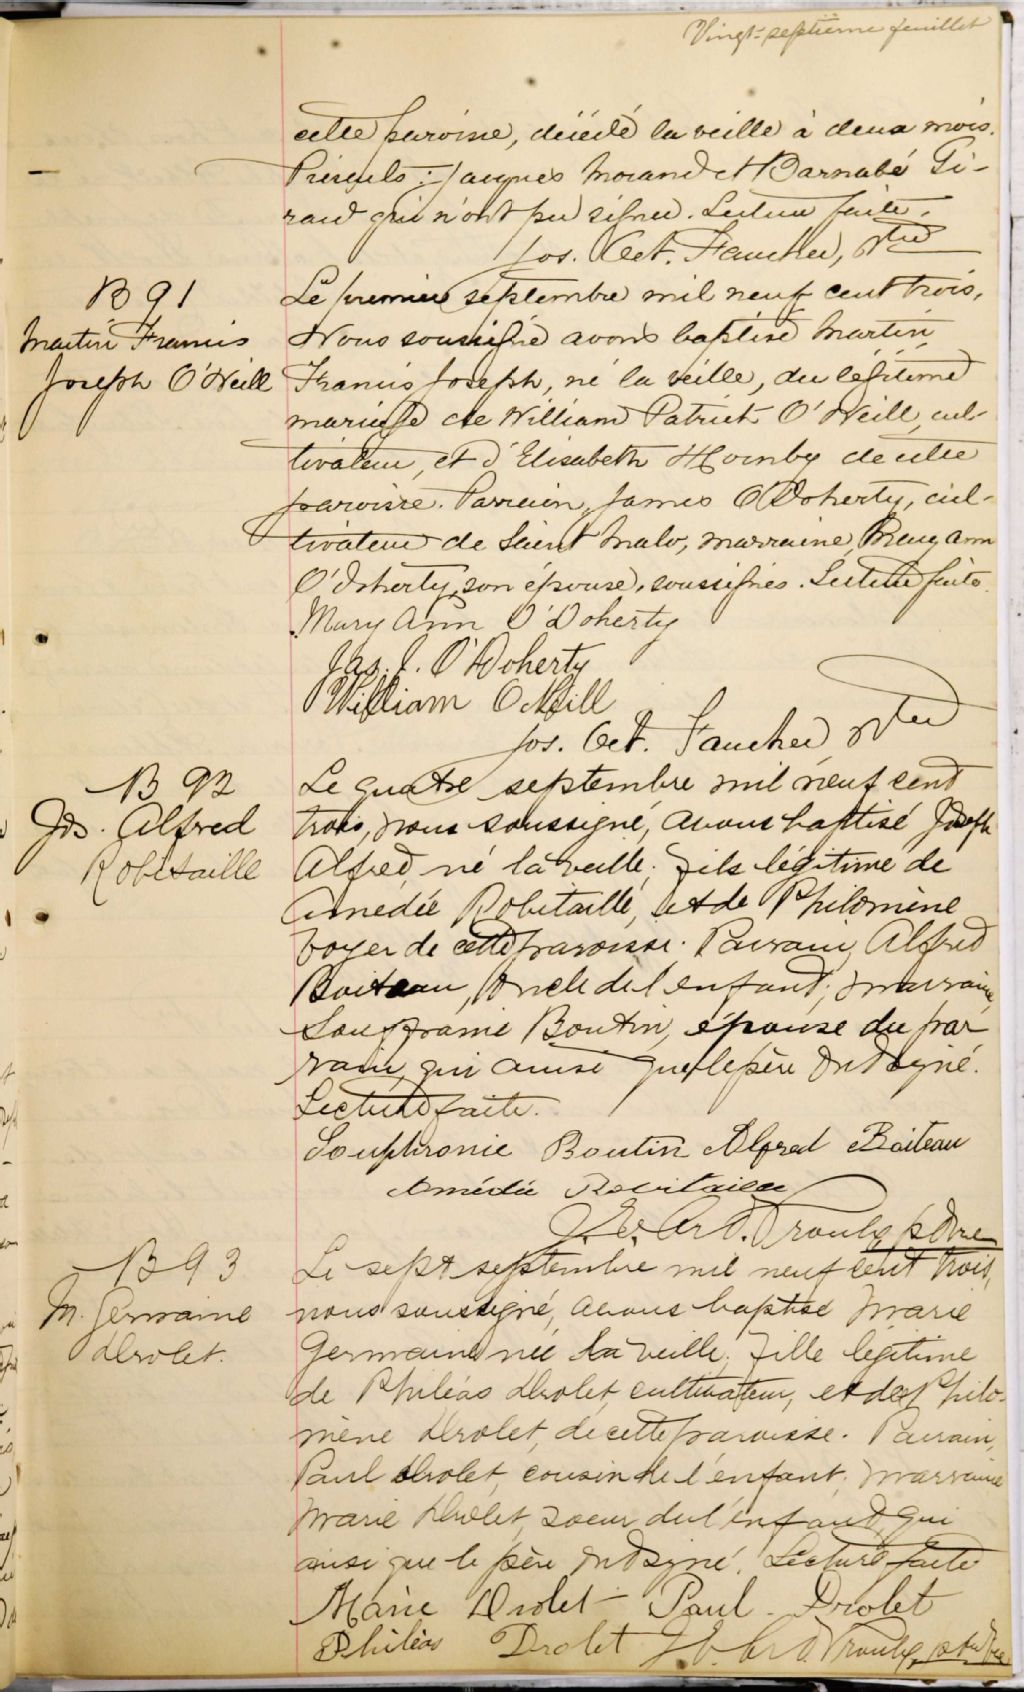 Vingt-septième feuillet
cette paroisse, décédé la veille à deux mois.
Présents : Jacques Morand et Barnabé Gi-
raud qui n'ont pu signer. Lecture faite.
Jos. Oct. Faucher, Ptre
B 91
Martin Francis
Joseph O'Neill
Le premier septembre mil neuf cent trois,
Nous soussigné avons baptisé Martin
Francis Joseph, né la veille, du légitime
mariage de William Patrick O'Neill, cul-
tivateur, et d'Elisabeth Hornby de cette
paroisse. Parrain, James O'Doherty, cul-
tivateur de Saint Malo, marraine, Mary Ann
O'Doherty, son épouse, soussignés. Lecture faite.
Mary Ann O'Doherty
Jas. J. O'Doherty
William O'Neill
Jos. Oct. Faucher Ptre
B 92
Jos. Alfred
Robitaille
Le quatre septembre mil neuf cent
trois, nous soussigné, avons baptisé Joseph
Alfred, né la veille, fils légitime de
Amédée Robitaille, et de Philomène
Boyer de cette paroisse. Parrain, Alfred
Boiteau, oncle de l'enfant; marraine,
Boutin, épouse du par
rain, qui ainsi que le père ont signé.
Lecture faite.
Souphronie Boutin Alfred Boiteau
Amédée Robitaille
ptre
B 93
M. Germaine
Drolet.
Le sept septembre mil neuf cent trois,
nous soussigné, avons baptisé Marie
Germaine née la veille, fille légitime
de Philéas Drolet, cultivateur, et de Philo-
mène Drolet, de cette paroisse. Parrain,
Paul Drolet, cousin de l'enfant; marraine
Marie Drolet, soeur de l'enfant, qui
ainsi que le père ont signé. Lecture faite
Marie Drolet Paul Drolet
Philéas Drolet